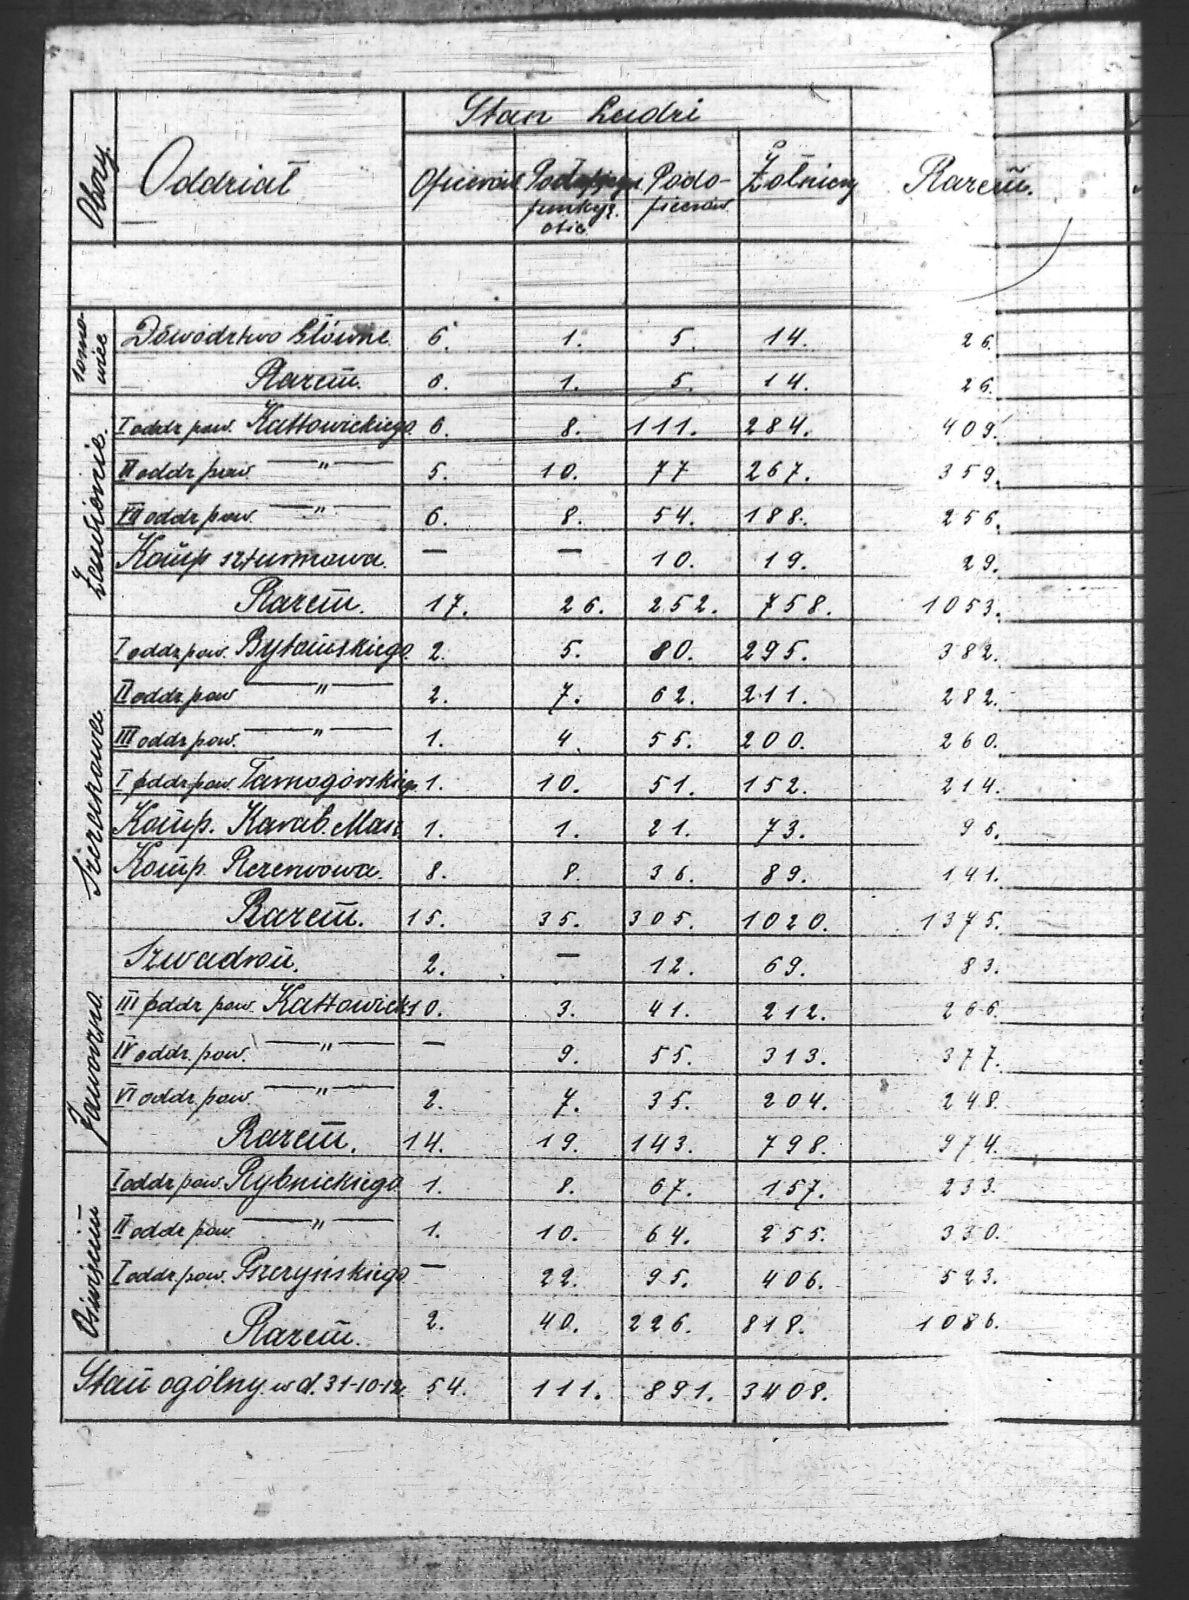 Stan Ludzi
Obozy. Oddział Oficerów Podof. funkcj. ofic. Podo- ficerów Żołnierzy Razem.
Sosno-
wiec
Dowództwo Główne. 6. 1. 5. 14. 26.
Razem. 6. 1. 5. 14. 26.
I oddz pow. Kattowickiego. 6. 8. 111. 284. 409.
II oddz pow. —"— 5. 10. 77 267. 359.
VII oddz pow. —"— 6. 8. 54. 188. 256.
Komp szturmowa. — — 10. 19. 29.
Razem. 17. 26. 252. 758. 1053.
Szczakowa
I oddz. pow. Bytomskiego. 2. 5. 80. 295. 382.
II oddz. pow —"— 2. 7. 62. 211. 282.
III oddz pow. —"— 1. 4. 55. 200. 260.
I oddz. pow. Tarnogórskieg. 1. 10. 51. 152. 214.
Komp. Karab. Masz. 1. 1. 21. 73. 96.
Komp. Rezerwowa. 8. 8. 36. 89. 141.
Razem. 15. 35. 305. 1020. 1375.
Jaworzno.
Szwadron. 2. — 12. 69. 83.
III oddz pow. Kattowick 10. 3. 41. 212. 266.
IV oddz. pow. —"— — 9. 55. 313. 377.
VI oddz. pow. —"— 2. 7. 35. 204. 248.
Razem. 14. 19. 143. 798. 974.
Oświęcim
I oddz. pow. Rybnickiego 1. 8. 67. 157. 233.
II oddz pow. —"— 1. 10. 64. 255. 330.
I oddz. pow. Pszczyńskiego — 22. 95. 406. 523.
Razem. 2. 40. 226. 818. 1086.
Stan ogólny w d. 31-10-19r. 54. 111. 891. 3408.